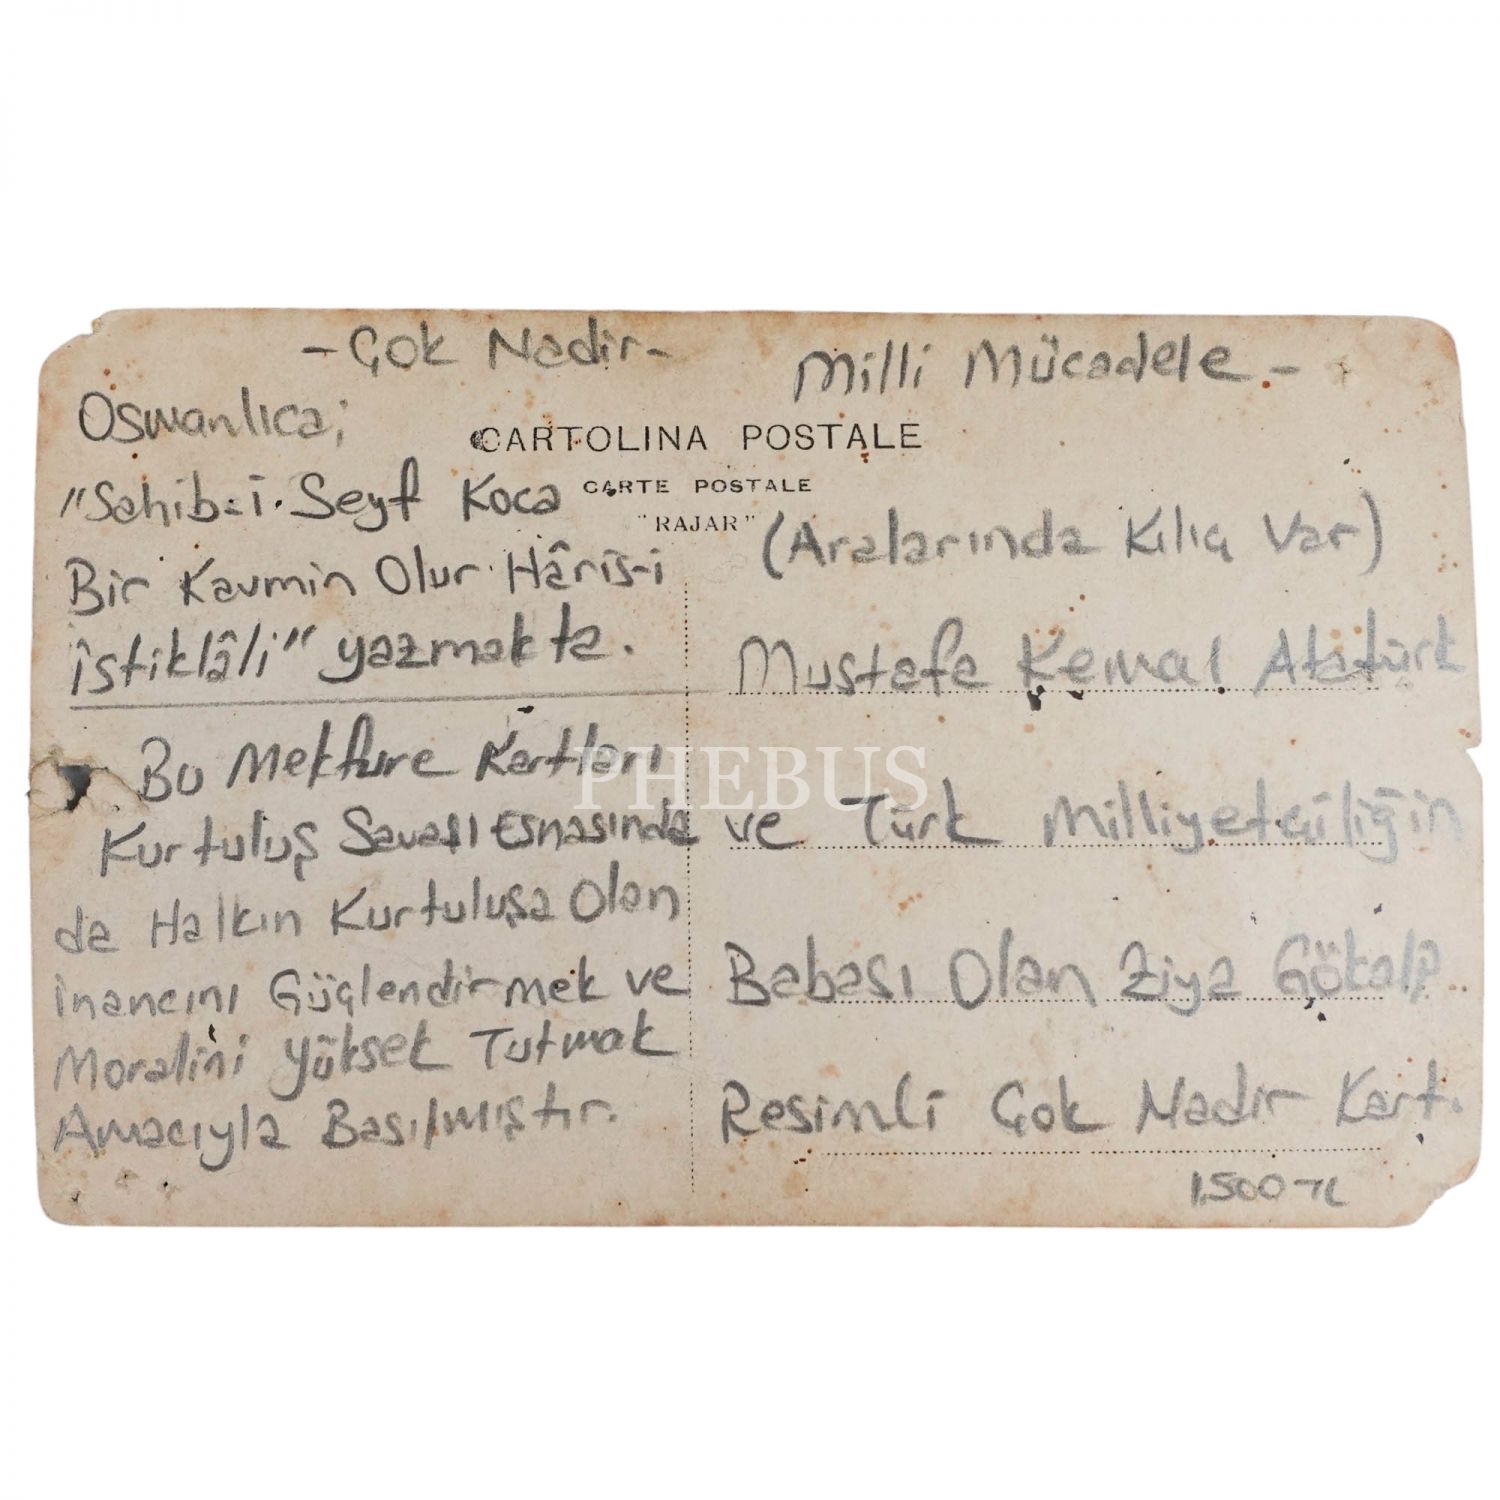 -Çok Nadir-
Osmanlıca;
"Sahib-i Seyf Koca
Bir Kavmin Olur Hâris-i
İstiklâli" yazmakta.
Bu Mefkure Kartları
Kurtuluş Savaşı Esnasında
da Halkın Kurtuluşa Olan
inancını Güçlendirmek ve
Moralini Yüksek Tutmak
Amacıyla Basılmıştır.
CARTOLINA POSTALE
CARTE POSTALE
"RAJAR"
Milli Mücadele-
(Aralarında Kılıç Var)
Mustafa Kemal Atatürk
ve Türk Milliyetçiliğin
Babası Olan Ziya Gökalp
Resimli Çok Nadir Kart.
1.500 TL
PHEBUS